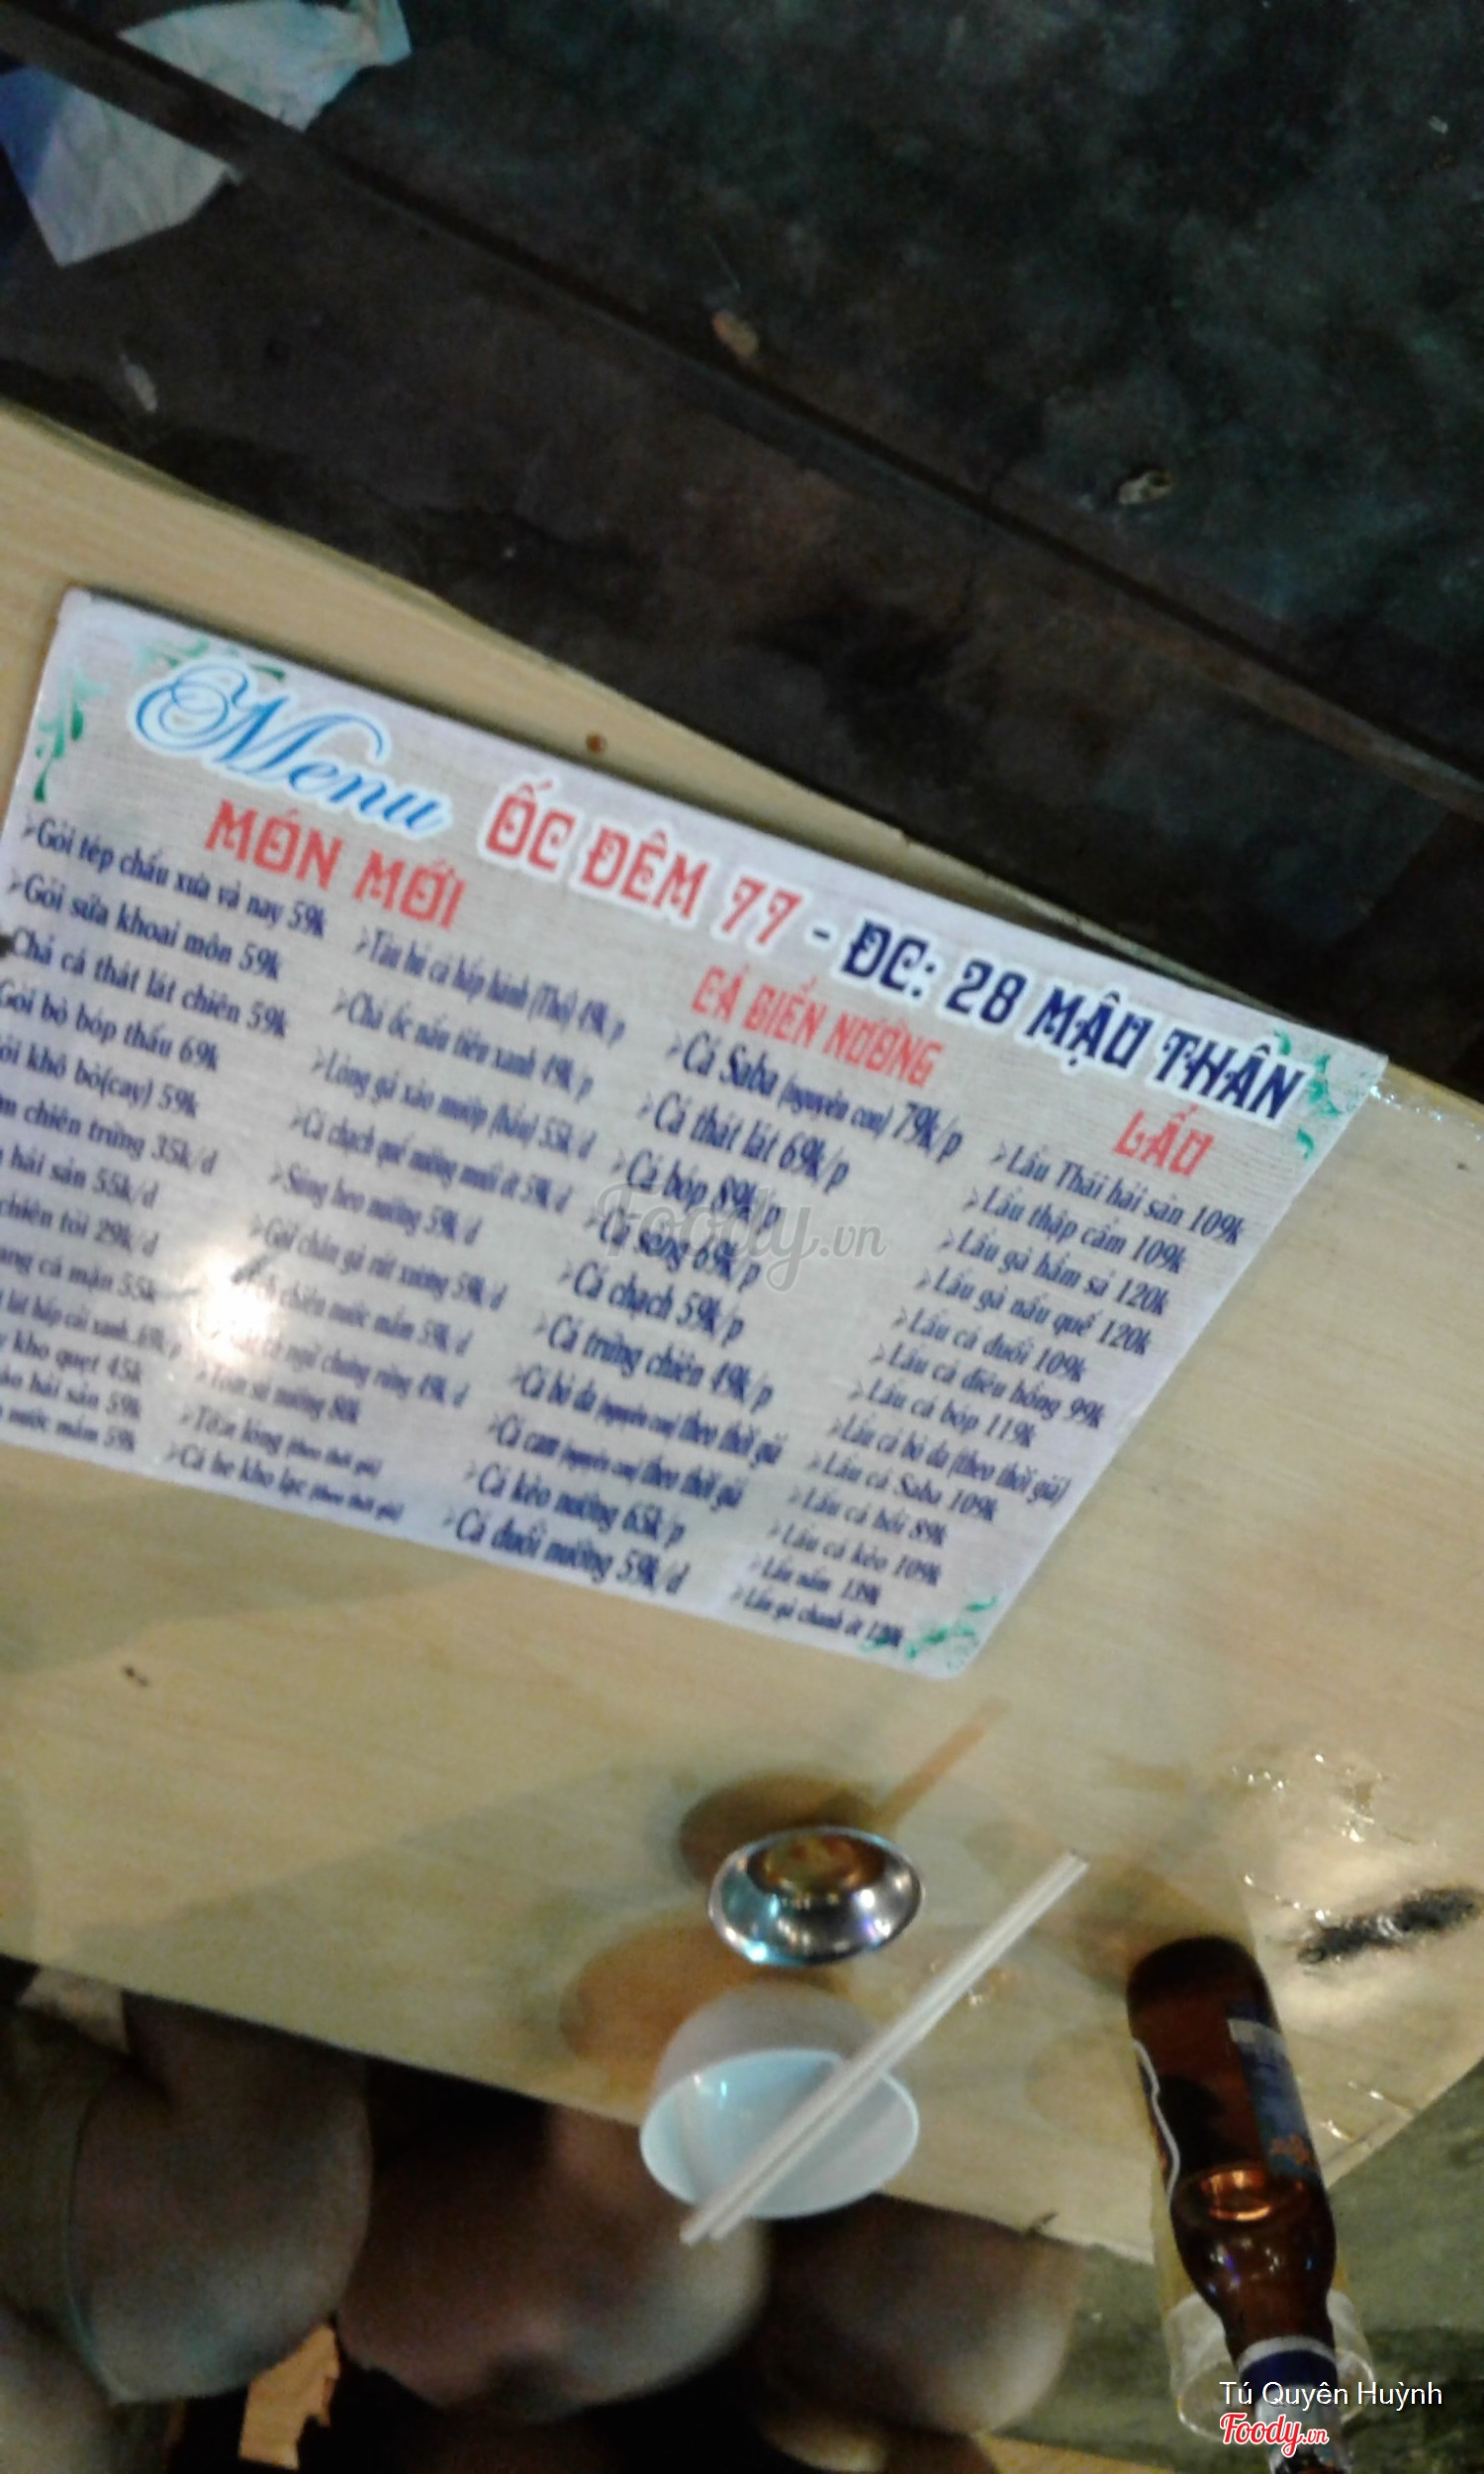 Menu ỐC ĐÊM 77 - ĐC: 28 MẬU THÂN
MÓN MỚI
Gỏi tép chấu xưa và nay 59k
Gỏi sứa khoai môn 59k
Chả cá thát lát chiên 59k
Gỏi bò bóp thấu 69k
khô bò(cay) 59k
chiên trứng 35k/đ
hải sản 55k/đ
chiên tỏi 29k/đ
cá mặn 55k
kho quẹt 45k
hải sản 59k
nước mắm 59k
Tàu hủ cá hấp hành (Thố) 49k/p
Chả ốc nấu tiêu xanh 49k/p
Lòng gà xào mướp (bầu) 55k/đ
Cá chạch quế nướng muối ớt 59k/đ
Sừng heo nướng 59k/đ
Gỏi chân gà rút xương 59k/đ
chiên nước mắm 59k/đ
nướng 80k
(theo thời giá)
Cá he kho lạt (theo thời giá)
CÁ BIỂN NƯỚNG
Cá Saba (nguyên con) 79k/p
Cá thát lát 69k/p
Cá bóp 89k/p
Cá song 69k/p
Cá chạch 59k/p
Cá trứng chiên 49k/p
Cá bò da (nguyên con) theo thời giá
Cá cam (nguyên con) theo thời giá
Cá kèo nướng 65k/p
Cá đuối nướng 59k/đ
LẨU
Lẩu Thái hải sản 109k
Lẩu thập cẩm 109k
Lẩu gà hầm sả 120k
Lẩu gà nấu quế 120k
Lẩu cá đuối 109k
Lẩu cá điêu hồng 99k
Lẩu cá bóp 119k
Lẩu cá bò da (theo thời giá)
Lẩu cá Saba 109k
Lẩu cá hồi 89k
Lẩu cá kèo 109k
Lẩu nấm 139k
Lẩu gà chanh ớt 120k
Foody.vn
Tú Quyên Huỳnh
Foody.vn